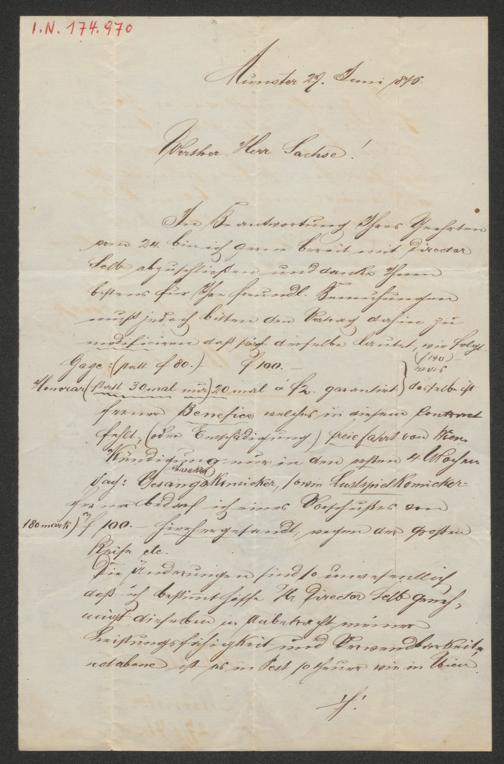 I.N. 174.970
Münster 27. Juni 1876.
Werther Herr Sachse!
In Beantwortung Ihres Geehrten
vom 24. bin ich gerne bereit mit Director
Selb abzuschließen und danke Ihnen
bestens für Ihre freundl. Bemühungen
muß jedoch bitten den Vertrag dahin zu
modificiren daß derselbe lautet, wie folgt.
Gage: (statt f 80.) f 100.—
Honorar (statt 30 mal nur) 20 mal à f 2. garantirt)
ferner Benefice welches in diesem Contract
fehlt, (oder Entschädigung) freie Fahrt von Wien
Kündigung nur in den ersten 4 Wochen
Fach: Gesangskomicker, sowie Lustspielkomicker
ferner bedarf ich eines Vorschußes von
180 mark) f 100.— hierher gesandt, wegen der großen
Reise etc.
Die Änderungen sind so unwesentlich
daß ich bestimt hoffe H. Director Selb geneh-
migt dieselben in anbetracht meiner
Leistungsfähigkeit und Verwendbarkeit,
notabene ist es in Pest so theuer wie in Wien.